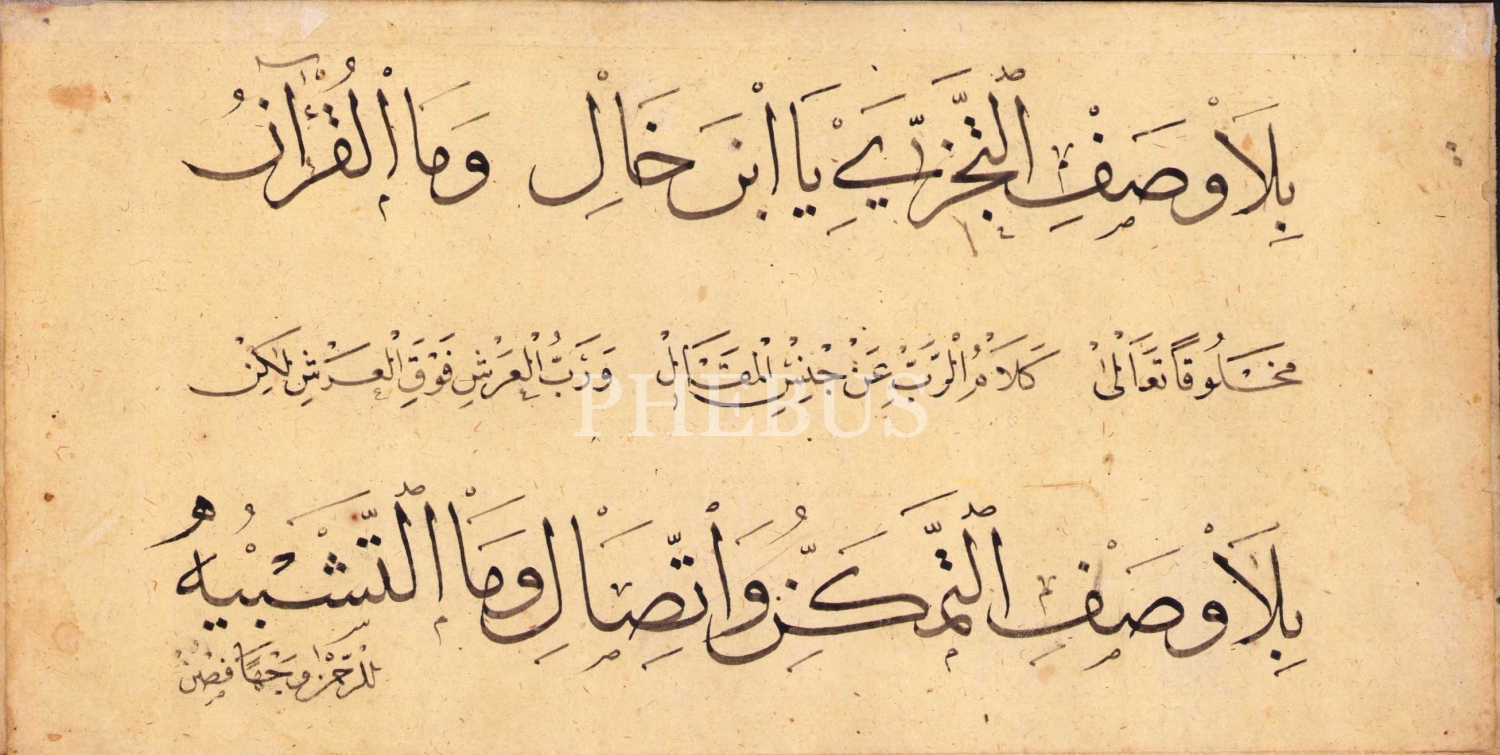 بِلَا وَصْفِ التَّجَزِّي يَا ابْنَ خَالِ وَمَا الْقُرْآنُ
مَخْلُوقًا تَعَالَى كَلَامُ الرَّبِّ عَنْ جِنْسِ الْمَقَالِ وَرَبُّ الْعَرْشِ فَوْقَ الْعَرْشِ لٰكِنْ
PHEBUS
بِلَا وَصْفِ التَّمَكُّنِ وَاتِّصَالِ وَمَا التَّشْبِيهُ
لِلرَّحْمٰنِ وَجْهًا فَصُنْ